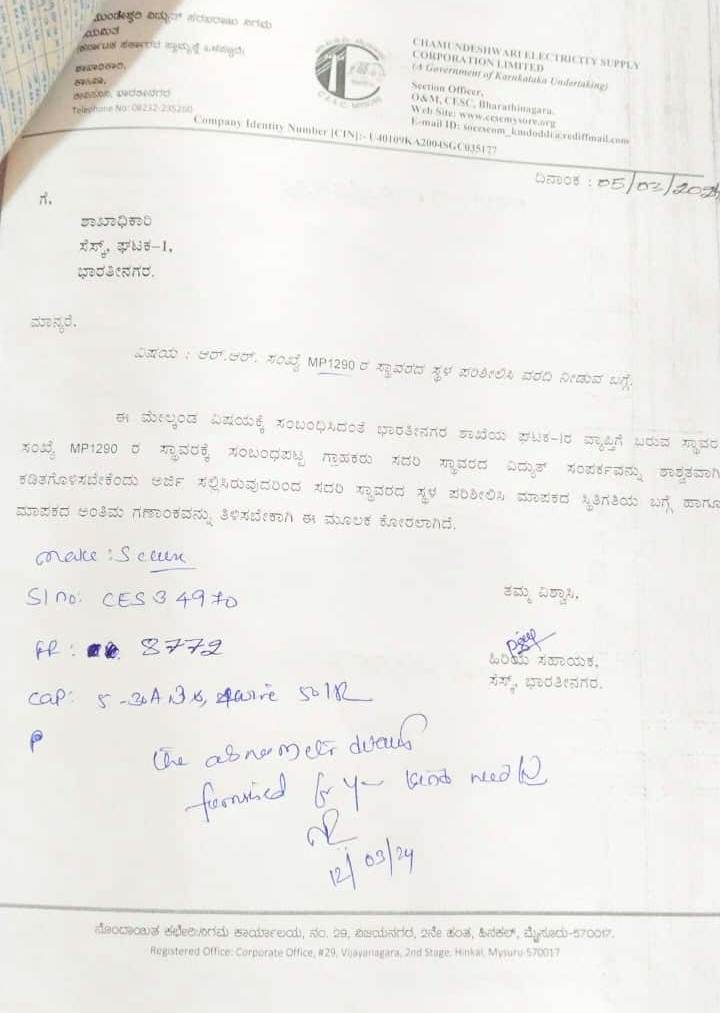 ಮುಂಡೇಶ್ವರಿ ವಿದ್ಯುತ್ ಸರಬರಾಜು ನಿಗಮ
ಯಮಿತ
(ಕರ್ನಾಟಕ ಸರ್ಕಾರದ ಸ್ವಾಮ್ಯಕ್ಕೆ ಒಳಪಟ್ಟಿದೆ)
ಶಾಖಾಧಿಕಾರಿ,
ಕಾಸಿಪಾ,
ಭಾರತೀನಗರ
Telephone No: 08232-235260
CHAMUNDESHWARI ELECTRICITY SUPPLY
CORPORATION LIMITED
(A Government of Karnkataka Undertaking)
Section Officer,
O&M, CESC, Bharathinagara.
Web Site: www.cesemysore.org
E-mail ID: soceseom_kmdoddi@rediffmail.com
Company Identity Number [CIN]:- U40109KA2004SGC035177
ದಿನಾಂಕ : 05/03/2024
ಗೆ,
ಶಾಖಾಧಿಕಾರಿ
ಸೆಸ್ಕ್, ಘಟಕ-1,
ಭಾರತೀನಗರ.
ಮಾನ್ಯರೆ,
ವಿಷಯ : ಆರ್.ಆರ್. ಸಂಖ್ಯೆ MP1290 ರ ಸ್ಥಾವರದ ಸ್ಥಳ ಪರಿಶೀಲಿಸಿ ವರದಿ ನೀಡುವ ಬಗ್ಗೆ.
ಈ ಮೇಲ್ಕಂಡ ವಿಷಯಕ್ಕೆ ಸಂಬಂಧಿಸಿದಂತೆ ಭಾರತೀನಗರ ಶಾಖೆಯ ಘಟಕ-1ರ ವ್ಯಾಪ್ತಿಗೆ ಬರುವ ಸ್ಥಾವರ
ಸಂಖ್ಯೆ MP1290 ರ ಸ್ಥಾವರಕ್ಕೆ ಸಂಬಂಧಪಟ್ಟ ಗ್ರಾಹಕರು ಸದರಿ ಸ್ಥಾವರದ ವಿದ್ಯುತ್ ಸಂಪರ್ಕವನ್ನು ಶಾಶ್ವತವಾಗಿ
ಕಡಿತಗೊಳಿಸಬೇಕೆಂದು ಅರ್ಜಿ ಸಲ್ಲಿಸಿರುವುದರಿಂದ ಸದರಿ ಸ್ಥಾವರದ ಸ್ಥಳ ಪರಿಶೀಲಿಸಿ ಮಾಪಕದ ಸ್ಥಿತಿಗತಿಯ ಬಗ್ಗೆ ಹಾಗೂ
ಮಾಪಕದ ಅಂತಿಮ ಗಣಾಂಕವನ್ನು ತಿಳಿಸಬೇಕಾಗಿ ಈ ಮೂಲಕ ಕೋರಲಾಗಿದೆ.
make : Secure
Sl no: CES34970
FR : 8772
ತಮ್ಮ ವಿಶ್ವಾಸಿ,
ಹಿರಿಯ ಸಹಾಯಕ,
ಸೆಸ್ಕ್, ಭಾರತೀನಗರ.
cap: 5-30A
the above meter details
furnished for kind need
12/03/24
ನೊಂದಾಯಿತ ಕಛೇರಿ:ನಿಗಮ ಕಾರ್ಯಾಲಯ, ನಂ. 29, ವಿಜಯನಗರ, 2ನೇ ಹಂತ, ಹಿನಕಲ್, ಮೈಸೂರು-570017.
Registered Office: Corporate Office, #29, Vijayanagara, 2nd Stage, Hinkal, Mysuru-570017